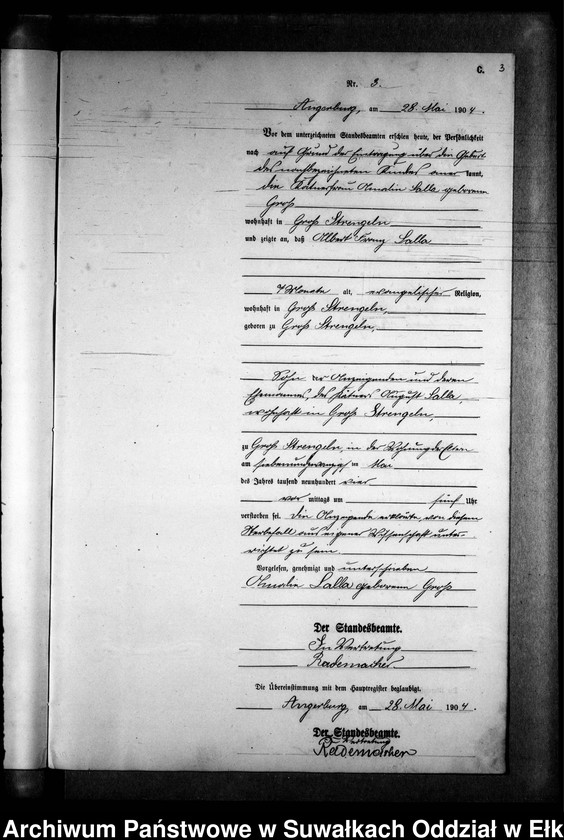 C. 3
Nr. 3.
Angerburg, am 28. Mai 1904.
Vor dem unterzeichneten Standesbeamten erschien heute, der Persönlichkeit
nach auf Grund der Eintragung über die Geburt
des nachbezeichneten Kindes aner kannt,
die Kätnerfrau Amalie Salla geborene
Groß
wohnhaft in Groß Strengeln
und zeigte an, daß Albert Franz Salla
7 Monate alt, evangelischer Religion,
wohnhaft in Groß Strengeln,
geboren zu Groß Strengeln,
Sohn der Anzeigenden und deren
Ehemannes, des Kätners August Salla,
wohnhaft in Groß Strengeln,
zu Groß Strengeln, in der Wohnung der Eltern
am siebenundzwanzigsten Mai
des Jahres tausend neunhundert vier
vor mittags um fünf Uhr
verstorben sei. Die Anzeigende erklärte, von diesem
Sterbefall aus eigener Wissenschaft unter-
richtet zu sein.
Vorgelesen, genehmigt und unterschrieben
Amalie Salla geborene Groß
Der Standesbeamte.
In Vertretung
Rademacher.
Die Übereinstimmung mit dem Hauptregister beglaubigt.
Angerburg, am 28. Mai 1904.
Der Standesbeamte.
In Vertretung
Rademacher
Archiwum Państwowe w Suwałkach Oddział w Ełk